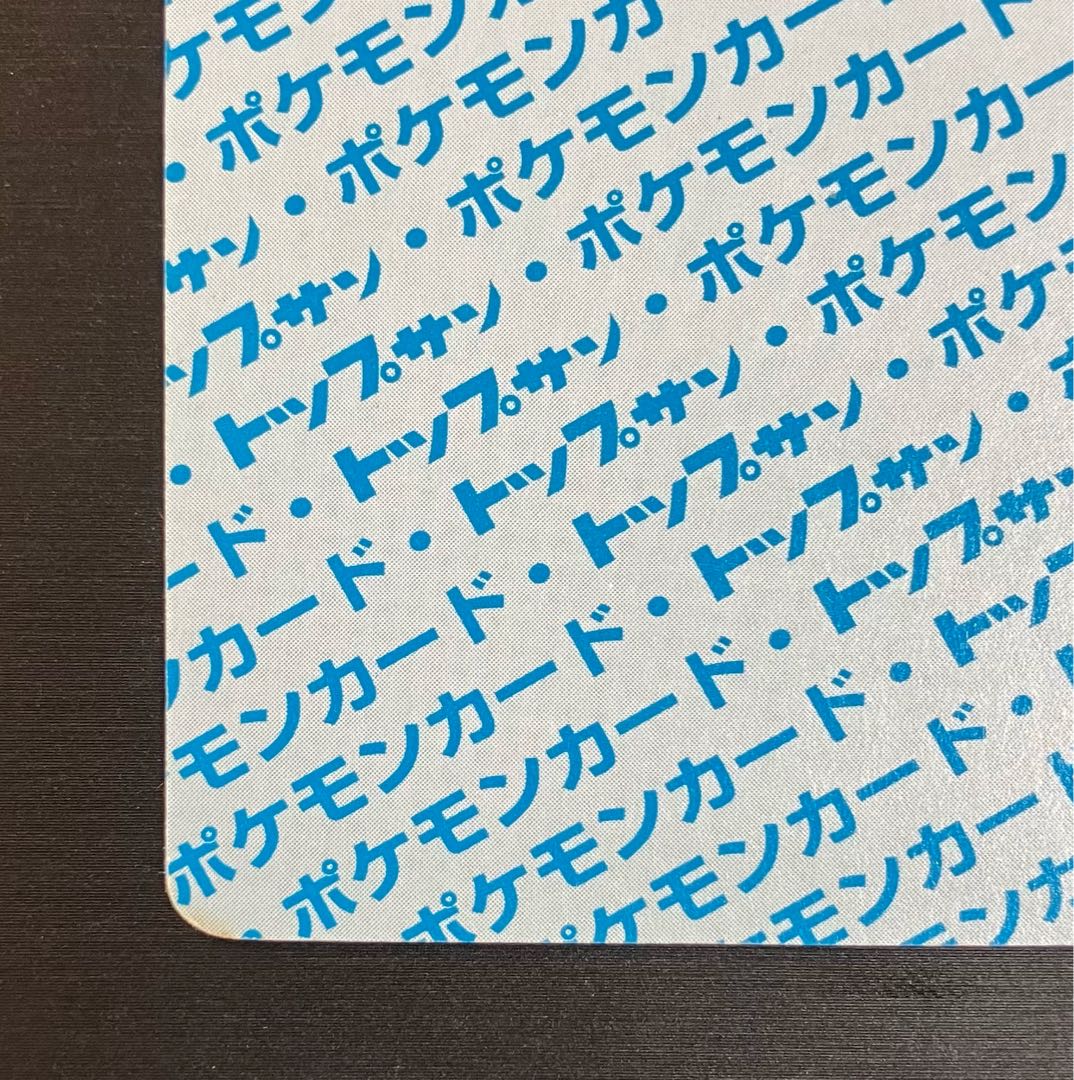 ケモ
・ポケモン
サン・ポケモンカ
ップサン・ポケモンカー
・トップサン・ポケモンカード
ード・トップサン・ポケモンカー
ンカード・トップサン・ポケモン
モンカード・トップサン・ポケ
ポケモンカード・トップサン・
ポケモンカード・トップサ
ポケモンカード・トッ
ケモンカード・
モンカー
ンカ